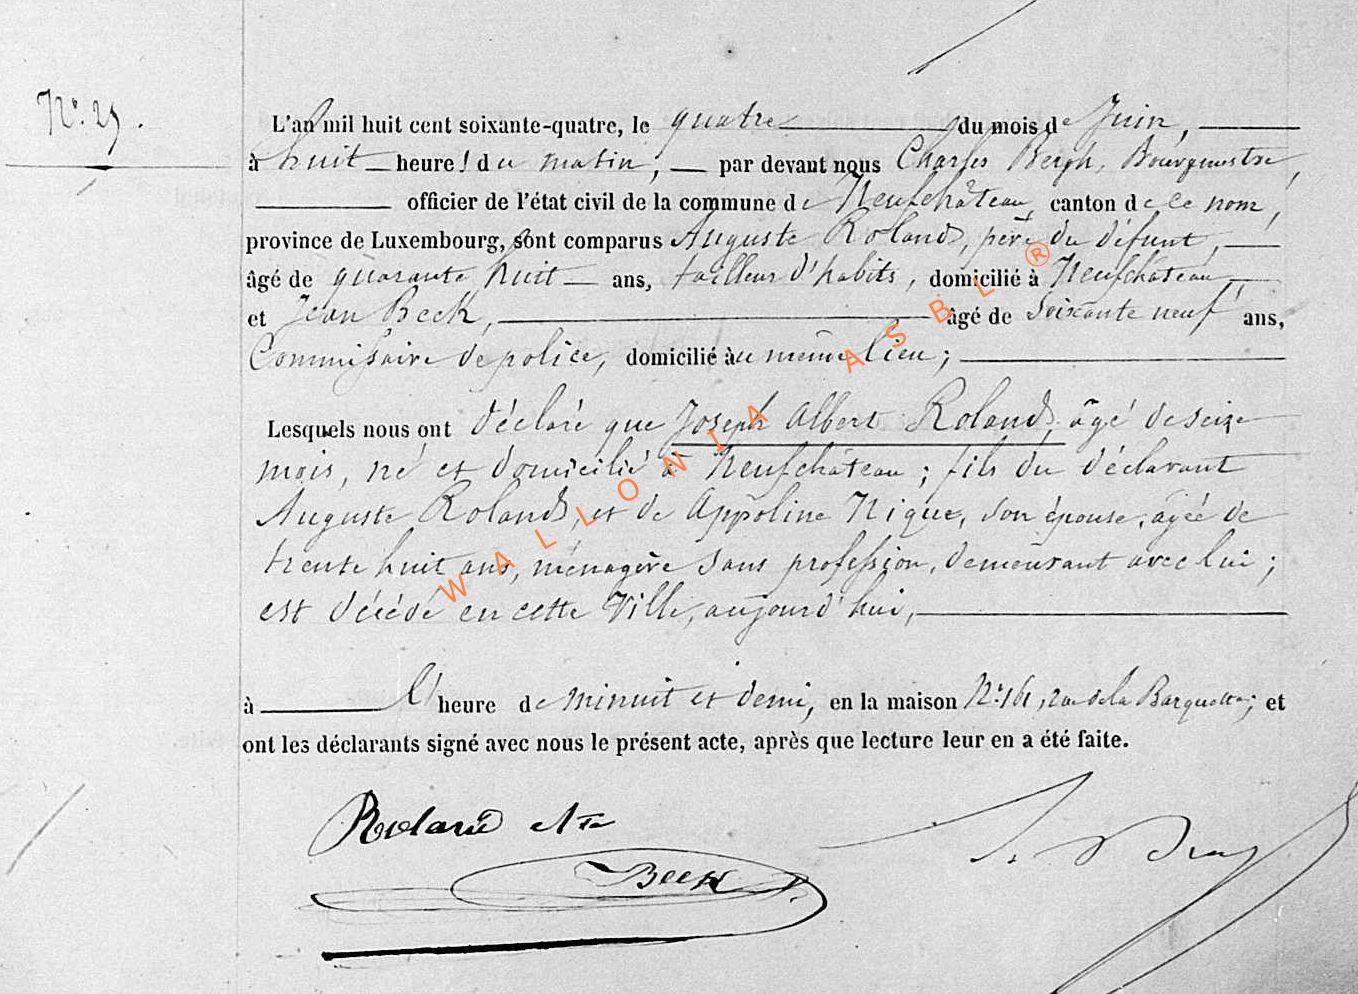 N°.
L'an mil huit cent soixante-quatre, le quatre du mois de Juin,
à huit heures du matin, par devant nous Charles Bergh, Bourgmestre,
officier de l'état civil de la commune de Neufchâteau, canton de ce nom,
province de Luxembourg, sont comparus Auguste Roland, père du défunt,
âgé de quarante huit ans, tailleur d'habits, domicilié à Neufchâteau,
et Jean Beck, âgé de soixante neuf ans,
Commissaire de police, domicilié au même lieu;
Lesquels nous ont déclaré que Joseph Albert Roland, âgé de seize
mois, né et domicilié à Neufchâteau; fils du déclarant
Auguste Roland, et de Appoline Nique, son épouse, agée de
trente huit ans, ménagère sans profession, demeurant avec lui;
est décédé en cette Ville, aujourd'hui,
à l'heure de minuit et demi, en la maison N° 161, rue de la ; et
ont les déclarants signé avec nous le présent acte, après que lecture leur en a été faite.
Roland
Beck
WALLONIA ASBL ®